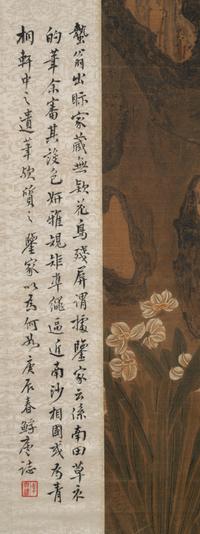 蟄翁出眎家藏無欵花鳥殘屏謂據鑒家云係南田草衣
的筆余審其設色妍雅規矩準繩逼近南沙相國或為青
桐軒中之遺筆欤質之鑒家以為何如庚辰春 志